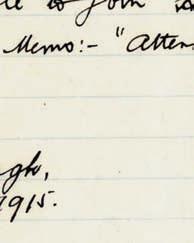 to join
Memo:- "Atten
gh,
1915.